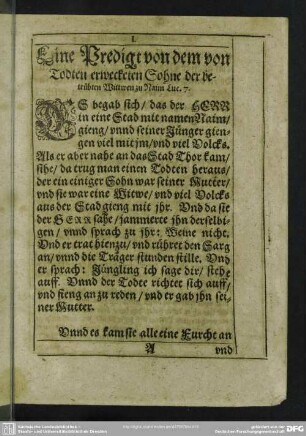 I.
Eine Predigt von dem von
Todten erweckten Sohne der be-
trübten Wittwen zu Naim Luc. 7.
ES begab sich / das der HERR
in eine Stad mit namen Naim
gieng / vnnd seiner Jünger gien-
gen viel mit jm / vnd viel Volcks.
Als er aber nahe an das Stad Thor kam /
sihe / da trug man einen Todten heraus /
der ein einiger Sohn war seiner Mutter /
vnd sie war eine Witwe / vnd viel Volcks
aus der Stad gieng mit jhr. Vnd da sie
der HERR sahe / jammerte jhn derselbi-
gen / vnnd sprach zu jhr: Weine nicht.
Vnd er trat hienzu / vnd rühret den Sarg
an / vnnd die Träger stunden stille. Vnd
er sprach: Jüngling ich sage dir / stehe
auff. Vnnd der Todte richtet sich auff /
vnd fieng an zu reden / vnd er gab jhn sei-
ner Mutter.
Vnnd es kam sie alle eine Furcht an
A vnd